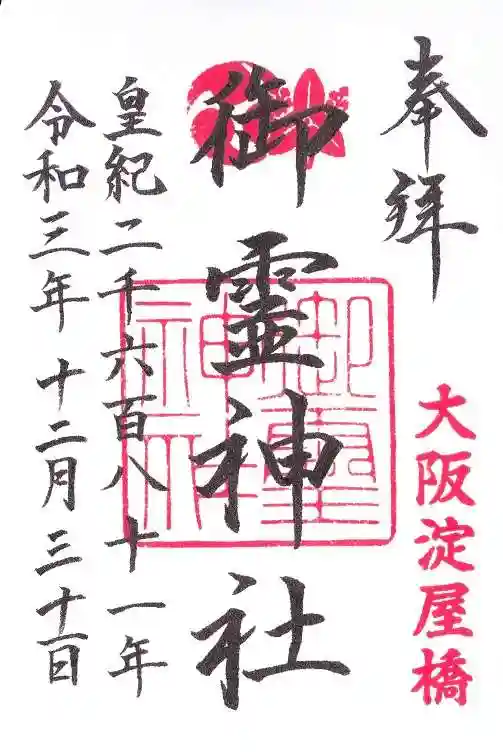 奉拝
大阪淀屋橋
御霊神社
御霊
神社
皇紀二千六百八十一年
令和三年十二月三十一日